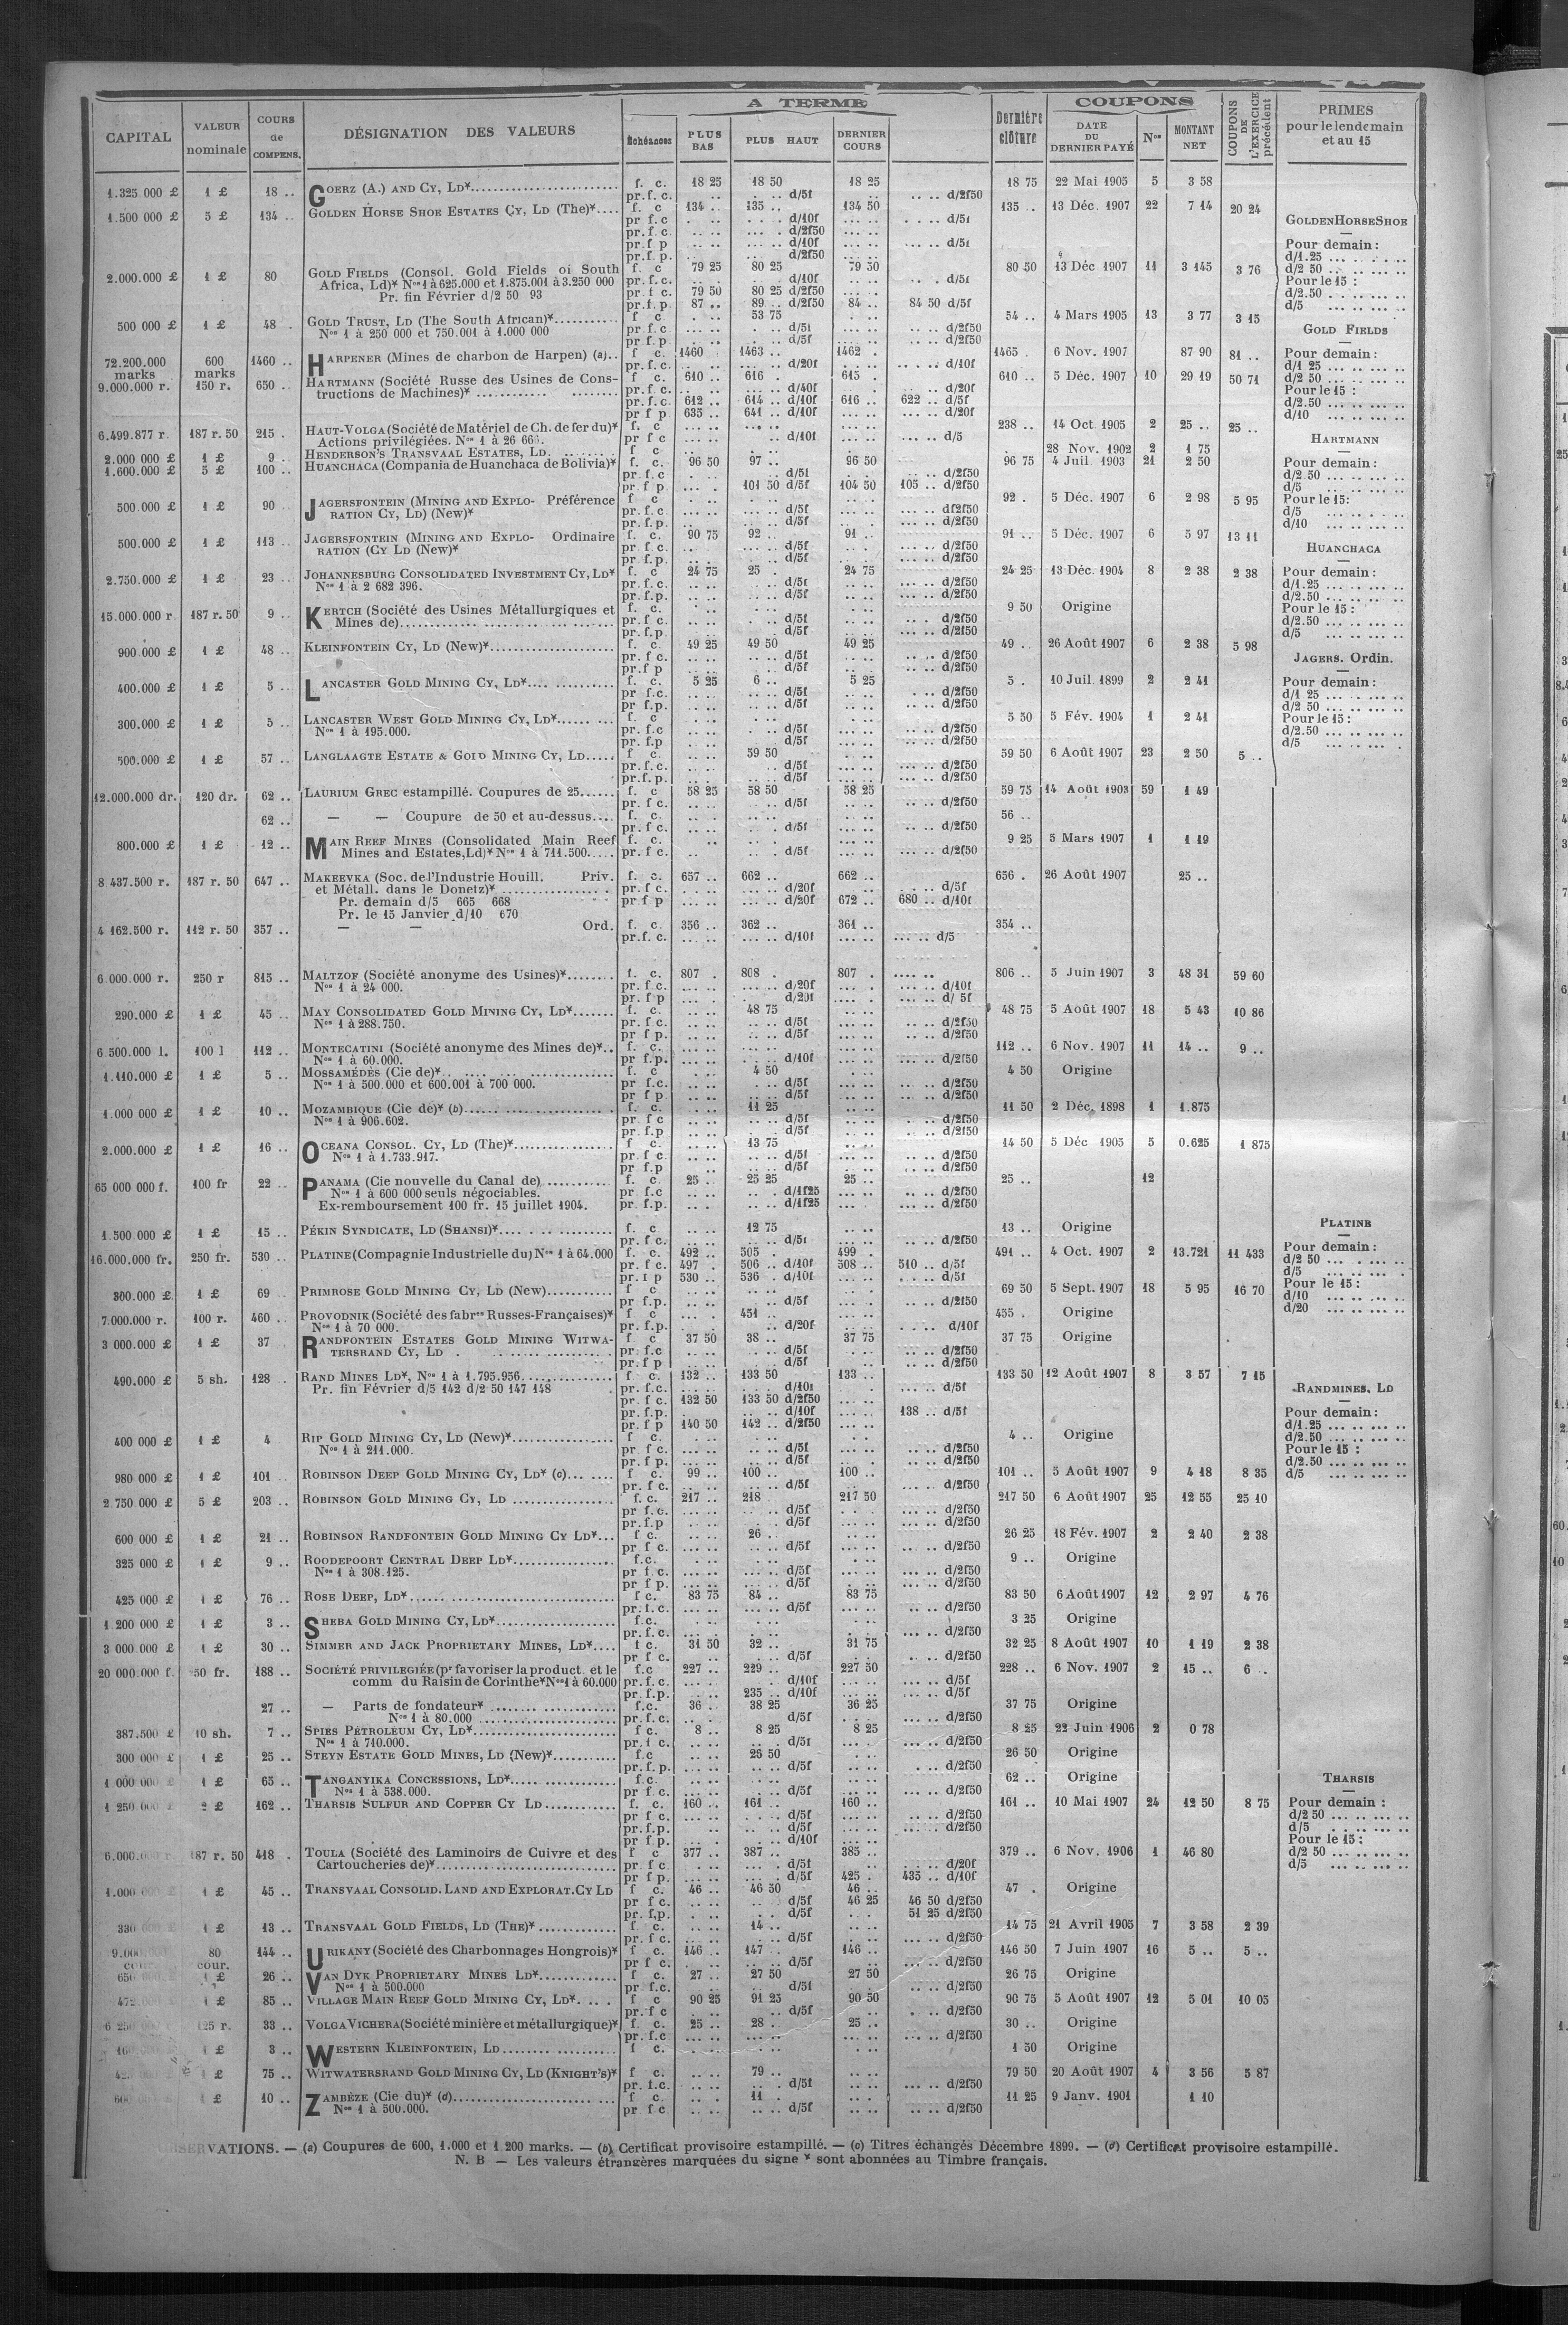 CAPITAL | VALEUR nominale | COURS de COMPENS. | DÉSIGNATION DES VALEURS | A TERME | Échéances | PLUS BAS | PLUS HAUT | DERNIER COURS | Dernière clôture | COUPONS | DATE DU DERNIER PAYÉ | Nos | MONTANT NET | COUPONS DE L'EXERCICE précédent | PRIMES pour le lendemain et au 15
1.325 000 £ | 1 £ | 18 .. | GOERZ (A.) AND CY, LD* | f. c. | 18 25 | 18 50 | 18 25 | 18 75 | 22 Mai 1905 | 5 | 3 58
pr. f. c. | d/5f | d/2f50
1.500 000 £ | 5 £ | 134 .. | GOLDEN HORSE SHOE ESTATES CY, LD (The)* | f. c | 134 .. | 135 .. | 134 50 | 135 .. | 13 Déc. 1907 | 22 | 7 14 | 20 24
pr f. c | d/10f | d/5f
pr. f. c | d/2f50
pr. f p | d/10f | d/5f
pr. f. p. | d/2f50
2.000.000 £ | 1 £ | 80 | GOLD FIELDS (Consol. Gold Fields of South | f. c | 79 25 | 80 25 | 79 50 | 80 50 | 13 Déc 1907 | 11 | 3 145 | 3 76
Africa, Ld)* Nos 1 à 625.000 et 1.875.001 à 3.250 000 | pr. f. c. | d/10f | d/5f
Pr. fin Février d/2 50 93 | pr. f c. | 79 50 | 80 25 d/2f50
pr. f. p. | 87 .. | 89 .. d/2f50 | 84 .. | 84 50 d/5f
500 000 £ | 1 £ | 48 . | GOLD TRUST, LD (The South African)* | f c | 53 75 | 54 .. | 4 Mars 1905 | 13 | 3 77 | 3 15
Nos 1 à 250 000 et 750.001 à 1.000 000 | pr. f c | d/5f | d/2f50
pr. f p | d/5f | d/2f50
72.200.000 marks | 600 marks | 1460 .. | HARPENER (Mines de charbon de Harpen) (a) | f c. | 1460 | 1463 .. | 1462 . | 1465 . | 6 Nov. 1907 | 87 90 | 81 ..
pr. f. c. | d/20f | d/10f
9.000.000 r. | 150 r. | 650 .. | HARTMANN (Société Russe des Usines de Cons- | f c. | 610 .. | 616 . | 615 . | 610 .. | 5 Déc. 1907 | 10 | 29 19 | 50 71
tructions de Machines)* | pr. f c. | d/40f | d/20f
pr. f. c. | 612 .. | 614 .. d/10f | 616 .. | 622 .. d/5f
pr f p | 635 .. | 641 .. d/10f | d/20f
6.499.877 r | 187 r. 50 | 215 . | HAUT-VOLGA (Société de Matériel de Ch. de fer du)* | f. c | 238 .. | 14 Oct. 1905 | 2 | 25 .. | 25 ..
Actions privilégiées. Nos 1 à 26 66 . | pr f c | d/10f | d/5
2.000 000 £ | 1 £ | 9 .. | HENDERSON'S TRANSVAAL ESTATES, LD. | f c | 28 Nov. 1902 | 2 | 1 75
1.600.000 £ | 5 £ | 100 .. | HUANCHACA (Compania de Huanchaca de Bolivia)* | f. c. | 96 50 | 97 .. | 96 50 | 96 75 | 4 Juil. 1903 | 21 | 2 50
pr. f. c | d/5f | d/2f50
pr. f p | 101 50 d/5f | 104 50 | 105 .. d/2f50
500.000 £ | 1 £ | 90 .. | JAGERSFONTEIN (MINING AND EXPLO- Préférence | f c | 92 . | 5 Déc. 1907 | 6 | 2 98 | 5 95
RATION CY, LD) (New)* | pr. f. c | d/5f | d/2f50
pr. f. p. | d/5f | d/2f50
500.000 £ | 1 £ | 113 .. | JAGERSFONTEIN (MINING AND EXPLO- Ordinaire | f. c. | 90 75 | 92 .. | 91 .. | 91 .. | 5 Déc. 1907 | 6 | 5 97 | 13 11
RATION (CY LD (New)* | pr f c. | d/5f | d/2f50
pr. f.p. | d/5f | d/2f50
2.750.000 £ | 1 £ | 23 .. | JOHANNESBURG CONSOLIDATED INVESTMENT CY, LD* | f. c | 24 75 | 25 . | 24 75 | 24 25 | 13 Déc. 1904 | 8 | 2 38 | 2 38
Nos 1 à 2 682 396. | pr. f. c. | d/5f | d/2f50
pr. f.p. | d/5f | d/2f50
15.000.000 r | 187 r. 50 | 9 .. | KERTCH (Société des Usines Métallurgiques et | f. c. | 9 50 | Origine
Mines de) | pr. f c | d/5f | d/2f50
pr. f.p. | d/5f | d/2f50
900.000 £ | 1 £ | 48 .. | KLEINFONTEIN CY, LD (New)* | f. c. | 49 25 | 49 50 | 49 25 | 49 .. | 26 Août 1907 | 6 | 2 38 | 5 98
pr. f c. | d/5f | d/2f50
pr. f p | d/5f | d/2f50
400.000 £ | 1 £ | 5 .. | LANCASTER GOLD MINING CY, LD* | f. c. | 5 25 | 6 .. | 5 25 | 5 . | 10 Juil. 1899 | 2 | 2 41
pr f.c. | d/5f | d/2f50
pr. f.p. | d/5f | d/2f50
300.000 £ | 1 £ | 5 .. | LANCASTER WEST GOLD MINING CY, LD* | f. c | 5 50 | 5 Fév. 1904 | 1 | 2 41
Nos 1 à 195.000. | pr. f.c | d/5f | d/2f50
pr. f.p | d/5f | d/2f50
500.000 £ | 1 £ | 57 .. | LANGLAAGTE ESTATE & GOLD MINING CY, LD | f c. | 59 50 | 59 50 | 6 Août 1907 | 23 | 2 50 | 5 ..
pr. f. c. | d/5f | d/2f50
pr. f. p. | d/5f | d/2f50
12.000.000 dr. | 120 dr. | 62 .. | LAURIUM GREC estampillé. Coupures de 25 | f. c | 58 25 | 58 50 | 58 25 | 59 75 | 14 Août 1903 | 59 | 1 49
pr. f c. | d/5f | d/2f50
62 .. | — — Coupure de 50 et au-dessus | f. c. | 56 ..
pr. f c. | d/5f | d/2f50
800.000 £ | 1 £ | 12 .. | MAIN REEF MINES (Consolidated Main Reef | f. c. | 9 25 | 5 Mars 1907 | 1 | 1 19
Mines and Estates, Ld)* Nos 1 à 711.500 | pr. f c. | d/5f | d/2f50
8 437.500 r. | 187 r. 50 | 647 .. | MAKEEVKA (Soc. de l'Industrie Houill. Priv. | f. c. | 657 .. | 662 .. | 662 .. | 656 . | 26 Août 1907 | 25 ..
et Métall. dans le Donetz)* | pr. f c. | d/20f | d/5f
Pr. demain d/5 665 668 | pr f p | d/20f | 672 .. | 680 .. d/10f
Pr. le 15 Janvier d/10 670
4 162.500 r. | 112 r. 50 | 357 .. | — — Ord. | f. c. | 356 .. | 362 .. | 361 .. | 354 ..
pr. f. c. | d/10f | d/5
6 000.000 r. | 250 r | 815 .. | MALTZOF (Société anonyme des Usines)* | f. c. | 807 . | 808 . | 807 . | 806 .. | 5 Juin 1907 | 3 | 48 31 | 59 60
Nos 1 à 24 000. | pr. f c. | d/20f | d/10f
pr. f p | d/20f | d/ 5f
290.000 £ | 1 £ | 45 .. | MAY CONSOLIDATED GOLD MINING CY, LD* | f. c. | 48 75 | 48 75 | 5 Août 1907 | 18 | 5 43 | 10 86
Nos 1 à 288.750. | pr. f c. | d/5f | d/2f50
pr f p. | d/5f | d/2f50
6 500.000 l. | 100 l | 112 .. | MONTECATINI (Société anonyme des Mines de)* | f. c. | 112 .. | 6 Nov. 1907 | 11 | 14 .. | 9 ..
Nos 1 à 60.000. | pr f.p. | d/10f | d/2f50
1.110.000 £ | 1 £ | 5 .. | MOSSAMÉDÈS (Cie de)* | f. c | 4 50 | 4 50 | Origine
Nos 1 à 500.000 et 600.001 à 700 000. | pr f.c. | d/5f | d/2f50
pr f p | d/5f | d/2f50
1.000 000 £ | 1 £ | 10 .. | MOZAMBIQUE (Cie de)* (b) | f. c. | 11 25 | 11 50 | 2 Déc. 1898 | 1 | 1.875
Nos 1 à 906.602. | pr f c | d/5f | d/2f50
pr. f.p | d/5f | d/2f50
2.000.000 £ | 1 £ | 16 .. | OCEANA CONSOL. CY, LD (The)* | f c. | 13 75 | 14 50 | 5 Déc 1905 | 5 | 0.625 | 1 875
Nos 1 à 1.733.917. | pr f c. | d/5f | d/2f50
pr f.p | d/5f | d/2f50
65 000 000 f. | 100 fr | 22 .. | PANAMA (Cie nouvelle du Canal de) | f. c. | 25 .. | 25 25 | 25 .. | 25 .. | 12
Nos 1 à 600 000 seuls négociables. | pr f.c | d/1f25 | d/2f50
Ex-remboursement 100 fr. 15 juillet 1904. | pr. f.p. | d/1f25 | d/2f50
1.500 000 £ | 1 £ | 15 .. | PÉKIN SYNDICATE, LD (SHANSI)* | f. c | 12 75 | 13 .. | Origine
pr. f c. | d/5f | d/2f50
16.000.000 fr. | 250 fr. | 530 .. | PLATINE (Compagnie Industrielle du) Nos 1 à 64.000 | f. c. | 492 .. | 505 . | 499 . | 491 .. | 4 Oct. 1907 | 2 | 13.721 | 11 433
pr. f c. | 497 . | 506 .. d/10f | 508 .. | 510 .. d/5f
pr. f p | 530 .. | 536 . d/10f | d/5f
300.000 £ | 1 £ | 69 .. | PRIMROSE GOLD MINING CY, LD (New) | f c | 69 50 | 5 Sept. 1907 | 18 | 5 95 | 16 70
pr f.p. | d/5f | d/2f50
7.000.000 r. | 100 r. | 460 .. | PROVODNIK (Société des fabres Russes-Françaises)* | f c | 451 .. | 455 . | Origine
Nos 1 à 70 000. | pr. f.p. | d/20f | d/10f
3 000.000 £ | 1 £ | 37 | RANDFONTEIN ESTATES GOLD MINING WITWA- | f c | 37 50 | 38 .. | 37 75 | 37 75 | Origine
TERSRAND CY, LD | pr. f.c | d/5f | d/2f50
pr. f p | d/5f | d/2f50
490.000 £ | 5 sh. | 128 .. | RAND MINES LD*, Nos 1 à 1.795.956 | f c. | 132 .. | 133 50 | 133 .. | 133 50 | 12 Août 1907 | 8 | 3 57 | 7 15
Pr. fin Février d/5 142 d/2 50 147 148 | pr. f.c. | d/10f | d/5f
pr. f c. | 132 50 | 133 50 d/2f50
pr. f.p. | d/10f | 138 .. d/5f
pr. f p | 140 50 | 142 .. d/2f50
400 000 £ | 1 £ | 4 | RIP GOLD MINING CY, LD (New)* | f c. | 4 .. | Origine
Nos 1 à 211.000. | pr f c. | d/5f | d/2f50
pr. f p. | d/5f | d/2f50
980 000 £ | 1 £ | 101 | ROBINSON DEEP GOLD MINING CY, LD* (c) | f c. | 99 .. | 100 .. | 100 .. | 101 .. | 5 Août 1907 | 9 | 4 18 | 8 35
pr. f c. | d/5f | d/2f50
2.750 000 £ | 5 £ | 203 .. | ROBINSON GOLD MINING CY, LD | f. c. | 217 .. | 218 . | 217 50 | 217 50 | 6 Août 1907 | 25 | 12 55 | 25 10
pr f.c. | d/5f | d/2f50
pr. f.p | d/5f | d/2f50
600 000 £ | 1 £ | 21 .. | ROBINSON RANDFONTEIN GOLD MINING CY LD* | f c. | 26 . | 26 25 | 18 Fév. 1907 | 2 | 2 40 | 2 38
pr f c. | d/5f | d/2f50
325 000 £ | 1 £ | 9 .. | ROODEPOORT CENTRAL DEEP LD* | f.c. | 9 .. | Origine
Nos 1 à 308.125. | pr f.c. | d/5f | d/2f50
pr f p. | d/5f | d/2f50
425 000 £ | 1 £ | 76 .. | ROSE DEEP, LD* | f c. | 83 75 | 84 .. | 83 75 | 83 50 | 6 Août 1907 | 12 | 2 97 | 4 76
pr. f. c. | d/5f | d/2f50
1 200 000 £ | 1 £ | 3 .. | SHEBA GOLD MINING CY, LD* | f.c. | 3 25 | Origine
pr. f. c. | d/2f50
3 000 000 £ | 1 £ | 30 .. | SIMMER AND JACK PROPRIETARY MINES, LD* | f c. | 31 50 | 32 .. | 31 75 | 32 25 | 8 Août 1907 | 10 | 1 19 | 2 38
pr f c. | d/5f | d/2f50
20 000.000 f. | 50 fr. | 188 .. | SOCIÉTÉ PRIVILEGIÉE (pr favoriser la product. et le | f.c | 227 .. | 229 .. | 227 50 | 228 .. | 6 Nov. 1907 | 2 | 15 .. | 6 ..
comm du Raisin de Corinthe* Nos 1 à 60.000 | pr. f. c. | d/10f | d/5f
pr. f.p. | 235 .. d/10f | d/5f
27 .. | — Parts de fondateur* | f.c. | 36 .. | 38 25 | 36 25 | 37 75 | Origine
Nos 1 à 80.000 | pr. f.c. | d/5f | d/2f50
387.500 £ | 10 sh. | 7 .. | SPIES PÉTROLEUM CY, LD* | f c. | 8 .. | 8 25 | 8 25 | 8 25 | 22 Juin 1906 | 2 | 0 78
Nos 1 à 710.000. | pr. f c. | d/5f | d/2f50
300 000 £ | 1 £ | 25 .. | STEYN ESTATE GOLD MINES, LD (New)* | f.c | 26 50 | 26 50 | Origine
pr. f. p. | d/5f | d/2f50
1 000 000 £ | 1 £ | 65 .. | TANGANYIKA CONCESSIONS, LD* | f.c. | 62 .. | Origine
Nos 1 à 538.000. | pr f c. | d/5f | d/2f50
1 250.000 £ | 2 £ | 162 .. | THARSIS SULFUR AND COPPER CY LD | f. c. | 160 .. | 161 .. | 160 .. | 161 .. | 10 Mai 1907 | 24 | 12 50 | 8 75
pr f c. | d/5f | d/2f50
pr. f.p. | d/5f | d/2f50
pr f p. | d/10f
6.000. | 187 r. 50 | 418 . | TOULA (Société des Laminoirs de Cuivre et des | f c | 377 .. | 387 .. | 385 .. | 379 .. | 6 Nov. 1906 | 1 | 46 80
Cartoucheries de)* | pr f c | d/5f | d/20f
pr f p. | d/5f | 425 . | 435 .. d/10f
1.000 | 1 £ | 45 .. | TRANSVAAL CONSOLID. LAND AND EXPLORAT. CY LD | f c. | 46 .. | 46 50 | 46 .. | 47 . | Origine
pr f c. | d/5f | 46 25 | 46 50 d/2f50
pr. f.p. | d/5f | 51 25 d/2f50
330 | 1 £ | 13 .. | TRANSVAAL GOLD FIELDS, LD (THE)* | f c. | 14 .. | 14 75 | 21 Avril 1905 | 7 | 3 58 | 2 39
pr. f c. | d/5f | d/2f50
9.000 | 80 cour. | 144 .. | URIKANY (Société des Charbonnages Hongrois)* | f c. | 146 .. | 147 .. | 146 .. | 146 50 | 7 Juin 1907 | 16 | 5 .. | 5 ..
pr f c. | d/5f | d/2f50
650 | 1 £ | 26 .. | VAN DYK PROPRIETARY MINES LD* | f c. | 27 .. | 27 50 | 27 50 | 26 75 | Origine
Nos 1 à 500.000 | pr f.c. | d/5f | d/2f50
472 | 1 £ | 85 .. | VILLAGE MAIN REEF GOLD MINING CY, LD* | f c | 90 25 | 91 25 | 90 50 | 90 75 | 5 Août 1907 | 12 | 5 01 | 10 05
pr. f c | d/5f | d/2f50
6 250 | 125 r. | 33 .. | VOLGA VICHERA (Société minière et métallurgique)* | f. c. | 25 .. | 28 .. | 25 .. | 30 .. | Origine
pr. f.c | d/2f50
160 | 1 £ | 3 .. | WESTERN KLEINFONTEIN, LD | f c. | 1 50 | Origine
1 £ | 75 .. | WITWATERSRAND GOLD MINING CY, LD (KNIGHT'S)* | f c. | 79 .. | 79 50 | 20 Août 1907 | 4 | 3 56 | 5 87
pr. f.c. | d/5f | d/2f50
600 | 1 £ | 10 .. | ZAMBÈZE (Cie du)* (d) | f c. | 11 . | 11 25 | 9 Janv. 1901 | 1 10
Nos 1 à 500.000. | pr f c | d/5f | d/2f50
GOLDEN HORSE SHOE
Pour demain :
d/1.25
d/2 50
Pour le 15 :
d/2.50
d/5
GOLD FIELDS
Pour demain :
d/1 25
d/2 50
Pour le 15 :
d/2.50
d/10
HARTMANN
Pour demain :
d/2.50
d/5
Pour le 15 :
d/5
d/10
HUANCHACA
Pour demain :
d/1.25
d/2.50
Pour le 15 :
d/2.50
d/5
JAGERS. Ordin.
Pour demain :
d/1 25
d/2 50
Pour le 15 :
d/2.50
d/5
PLATINE
Pour demain :
d/2 50
d/5
Pour le 15 :
d/10
d/20
RANDMINES, LD
Pour demain :
d/1.25
d/2.50
Pour le 15 :
d/2.50
d/5
THARSIS
Pour demain :
d/2 50
d/5
Pour le 15 :
d/2 50
d/5
OBSERVATIONS. — (a) Coupures de 600, 1.000 et 1 200 marks. — (b) Certificat provisoire estampillé. — (c) Titres échangés Décembre 1899. — (d) Certificat provisoire estampillé.
N. B — Les valeurs étrangères marquées du signe * sont abonnées au Timbre français.